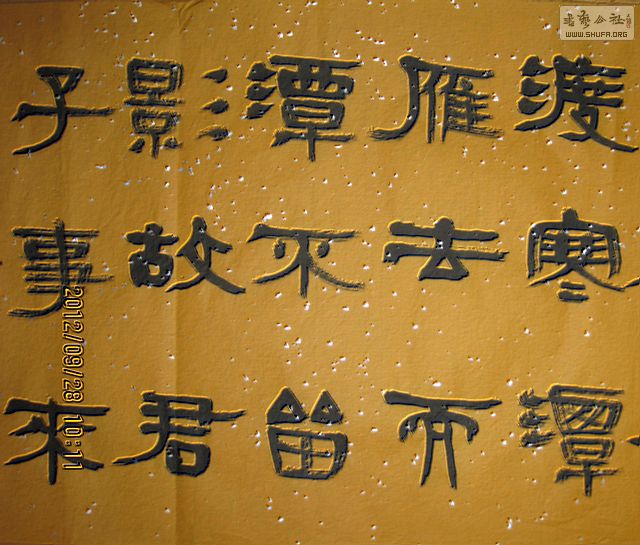 渡寒潭
雁去而
潭不留
影故君
子事來
2012/09/28 10:11
书艺公社
WWW.SHUFA.ORG